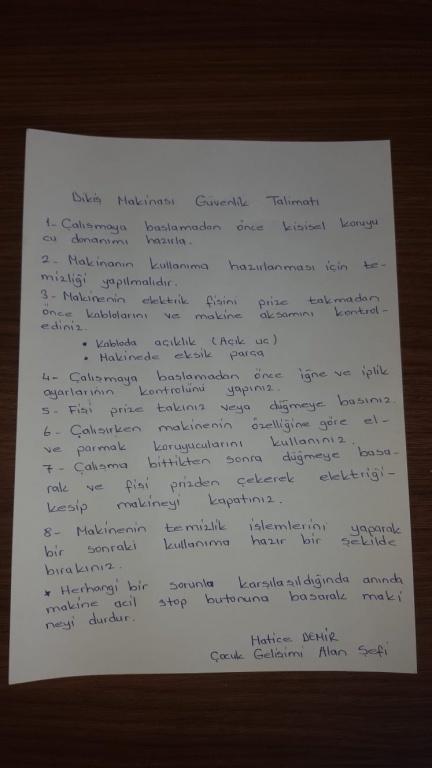 Dikiş Makinası Güvenlik Talimatı
1- Çalışmaya başlamadan önce kişisel koruyu
cu donanımı hazırla.
2- Makinanın kullanıma hazırlanması için te-
mizliği yapılmalıdır.
3- Makinenin elektrik fişini prize takmadan
önce kablolarını ve makine aksamını kontrol-
ediniz.
• Kabloda açıklık (Açık uç)
• Makinede eksik parça
4- Çalışmaya başlamadan önce iğne ve iplik
ayarlarının kontrolünü yapınız.
5- Fişi prize takınız veya düğmeye basınız.
6- Çalışırken makinenin özelliğine göre el-
ve parmak koruyucularını kullanınız.
7- Çalışma bittikten sonra düğmeye basa-
rak ve fişi prizden çekerek elektriği-
kesip makineyi kapatınız.
8- Makinenin temizlik işlemlerini yaparak
bir sonraki kullanıma hazır bir şekilde
bırakınız.
* Herhangi bir sorunla karşılaşıldığında anında
makine acil stop butonuna basarak maki
neyi durdur.
Hatice DEMİR
Çocuk Gelişimi Alan Şefi